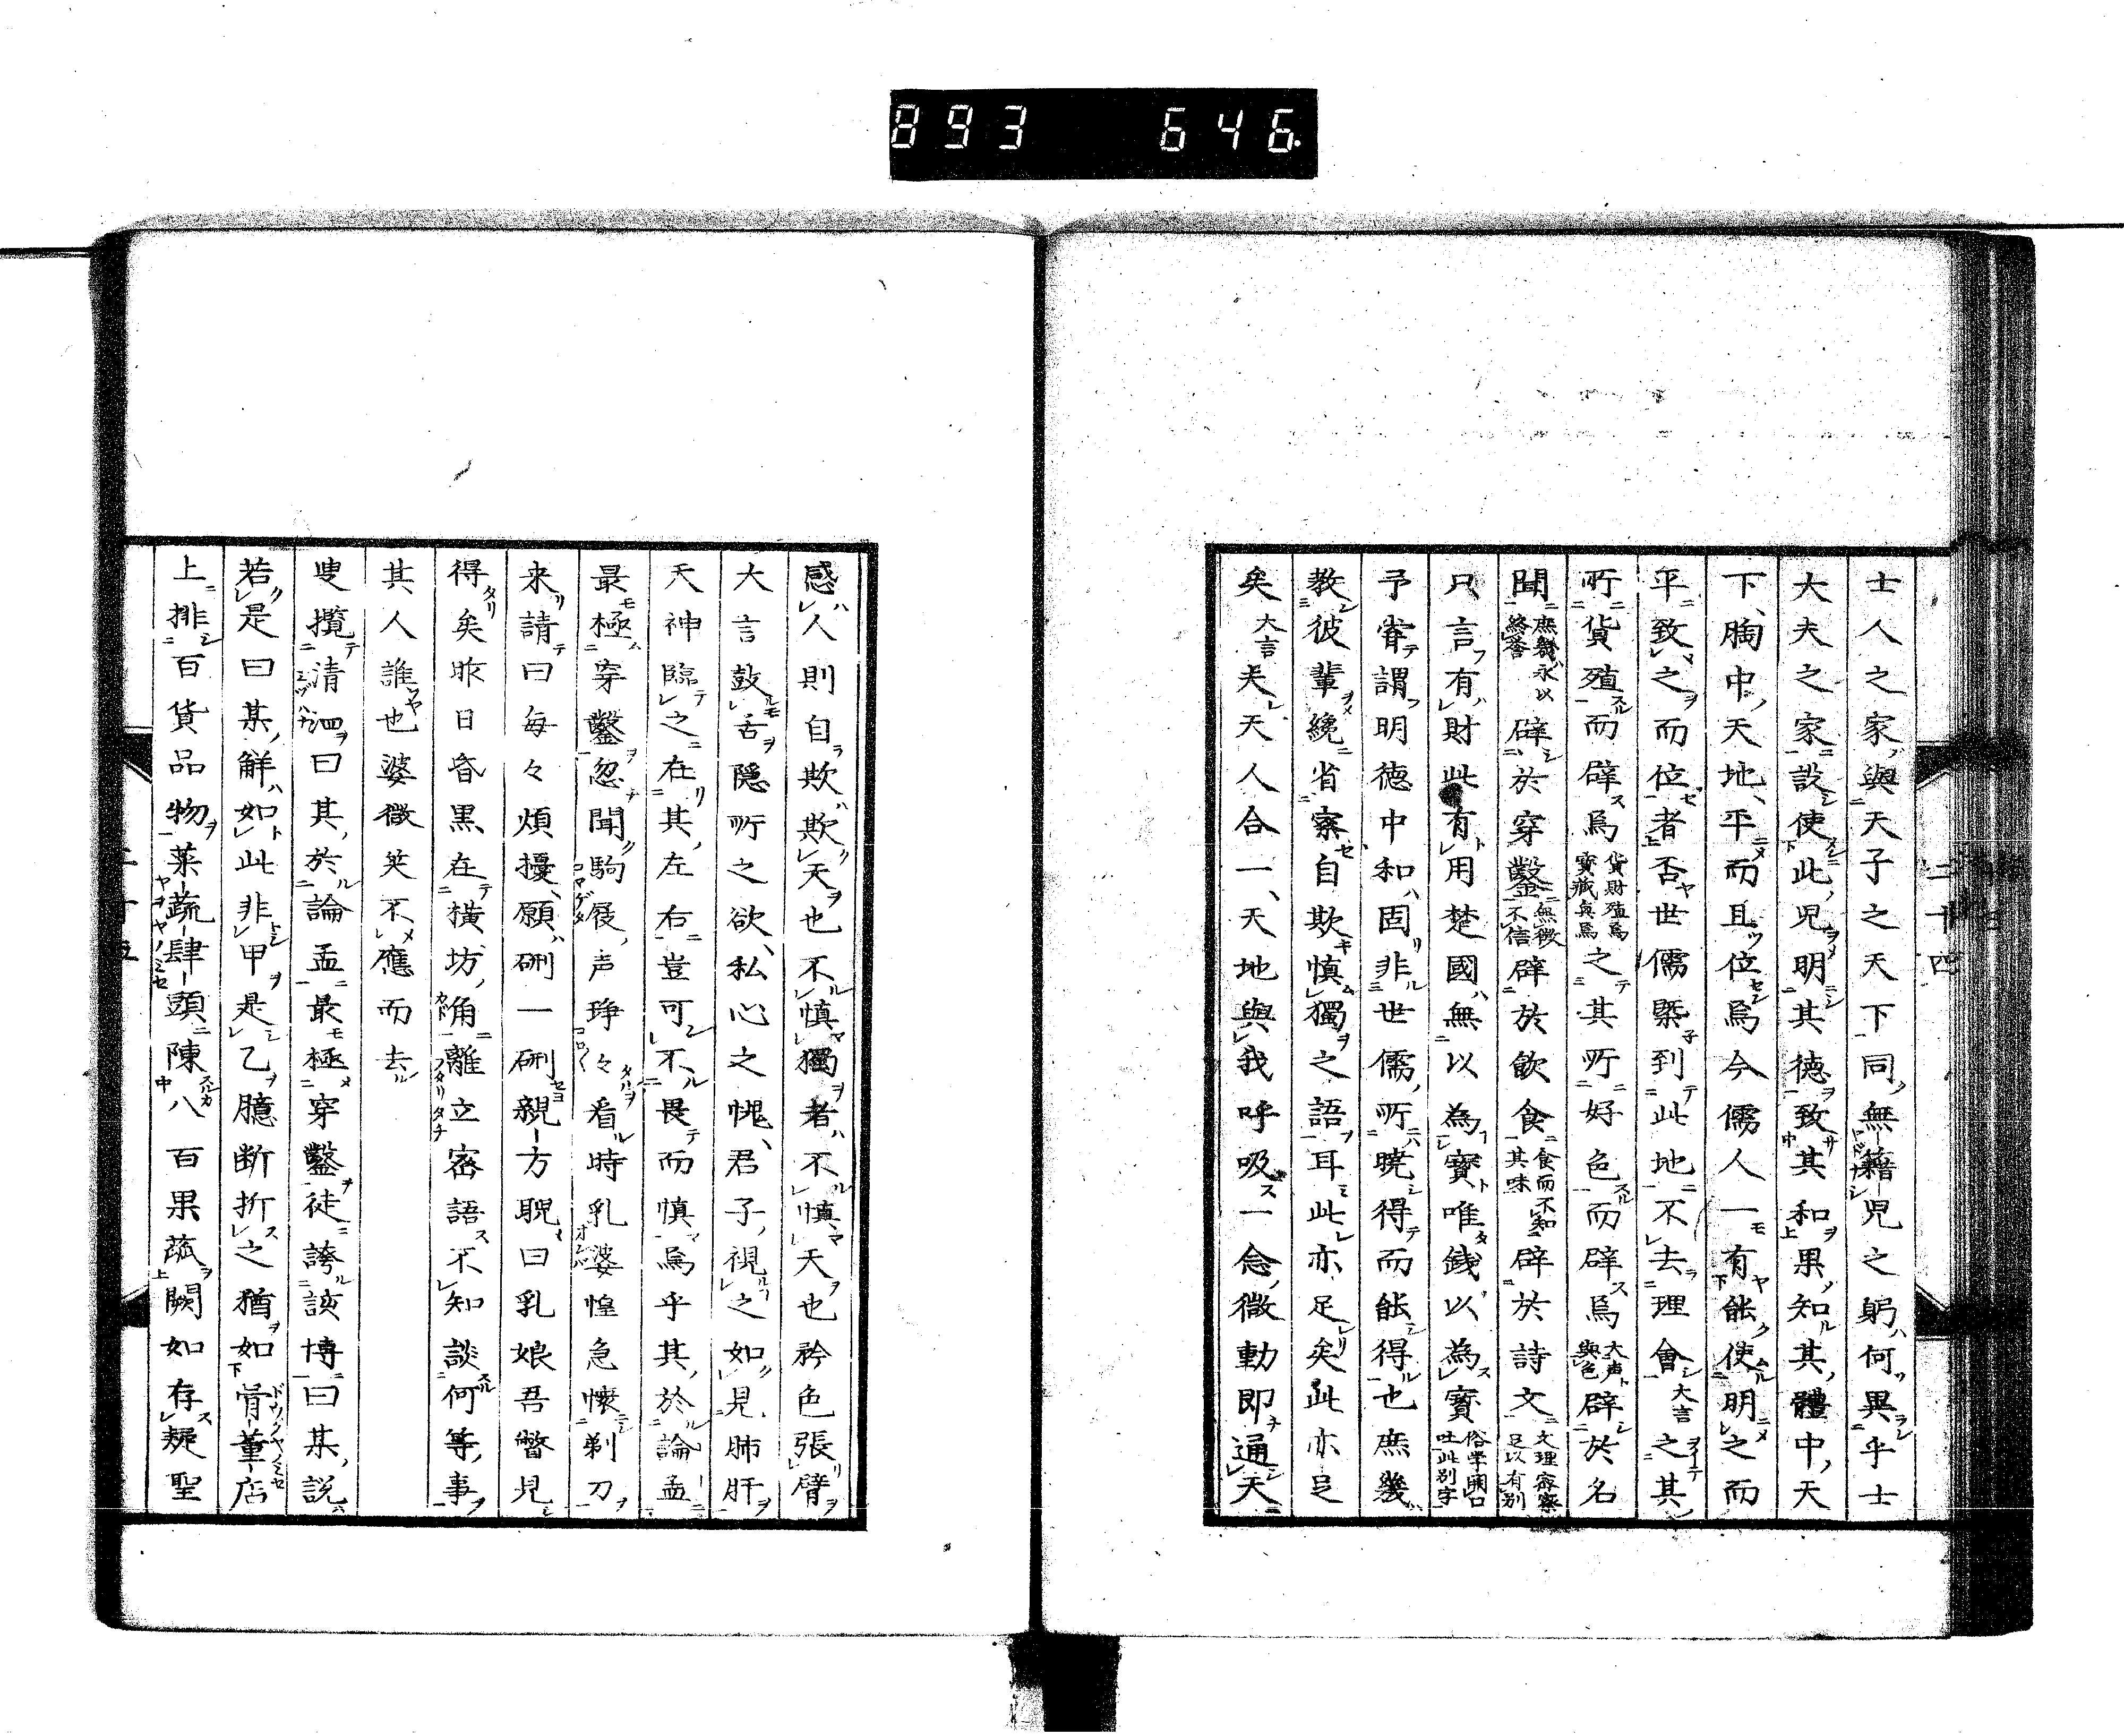 893 646
士人之家與天子之天下同無籍児之躬何異乎士
大夫之家設使此児明其德致其和果知其體中天
下胸中天地平而且位焉今儒人一有能使明之而
平致之而位者否世儒槩到此地不去理會大言之其
所貨殖而辟焉貨財殖焉寶藏與焉之其所好色而辟焉大声與色辟於名
聞庶幾永以終譽辟於穿鑿無徴不信辟於飲食食而不知其味辟於詩文文理密察足以有別
只言有財此有用楚國無以為寶唯錢以為寶俗学開口吐此別字
予甞謂明德中和固非世儒所曉得而能得也庶幾
教彼輩纔省察自欺慎獨之語耳此亦足矣此亦足
矣大言夫天人合一天地與我呼吸一念微動即通天
二十四
感人則自欺欺天也不慎獨者不慎天也矜色張臂
大言鼓舌隠所之欲私心之愧君子視之如見肺肝
天神臨之在其左右豈可不畏而慎焉乎其於論孟
最極穿鑿忽聞駒屐声琤々看時乳婆惶急懐剃刀
来請曰毎々煩擾願硎一硎親方睨曰乳娘吾瞥見
得矣昨日昏黒在横坊角離立密語不知談何等事
其人誰也婆微笑不應而去
叟攬清泗曰其於論孟最極穿鑿徒誇該博曰某説
若是曰某解如此非甲是乙臆断折之猶如骨董店
上排百貨品物菜蔬肆頭陳八百果蓏闕如存疑聖